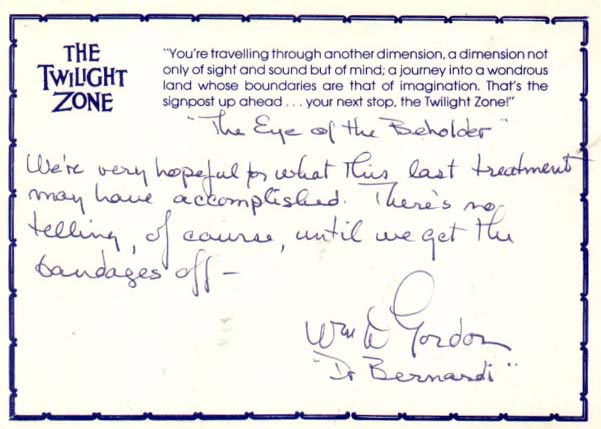 THE
TWILIGHT
ZONE
"You're travelling through another dimension, a dimension not
only of sight and sound but of mind; a journey into a wondrous
land whose boundaries are that of imagination. That's the
signpost up ahead . . . your next stop, the Twilight Zone!"
"The Eye of the Beholder"
We're very hopeful for what this last treatment
may have accomplished. There's no
telling, of course, until we get the
bandages off –
Wm D Gordon
"Dr Bernardi"